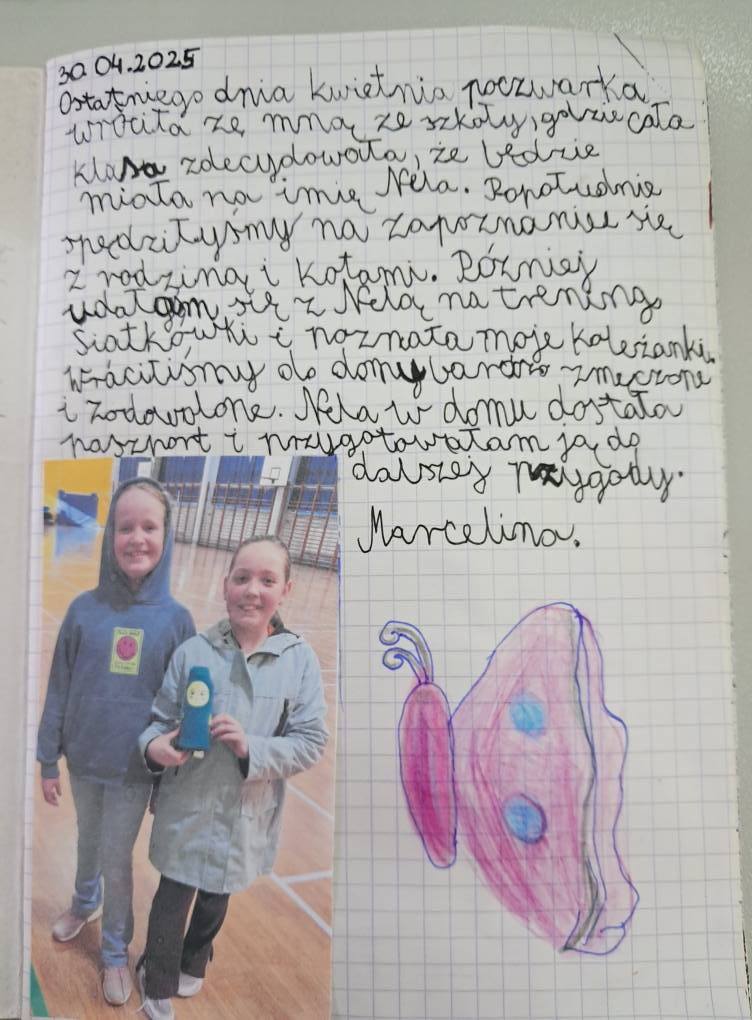 30.04.2025
Ostatniego dnia kwietnia poczwarka
wróciła ze mną ze szkoły, gdzie cała
klasa zdecydowała, że będzie
miała na imię Nela. Popołudnie
spędziłyśmy na zapoznaniu się
z rodziną i kotami. Później
udałam się z Nelą na trening
Siatkówki i poznała moje koleżanki.
Wróciliśmy do domu bardzo zmęczone
i zadowolone. Nela w domu dostała
paszport i przygotowałam ją do
dalszej przygody.
Marcelina.